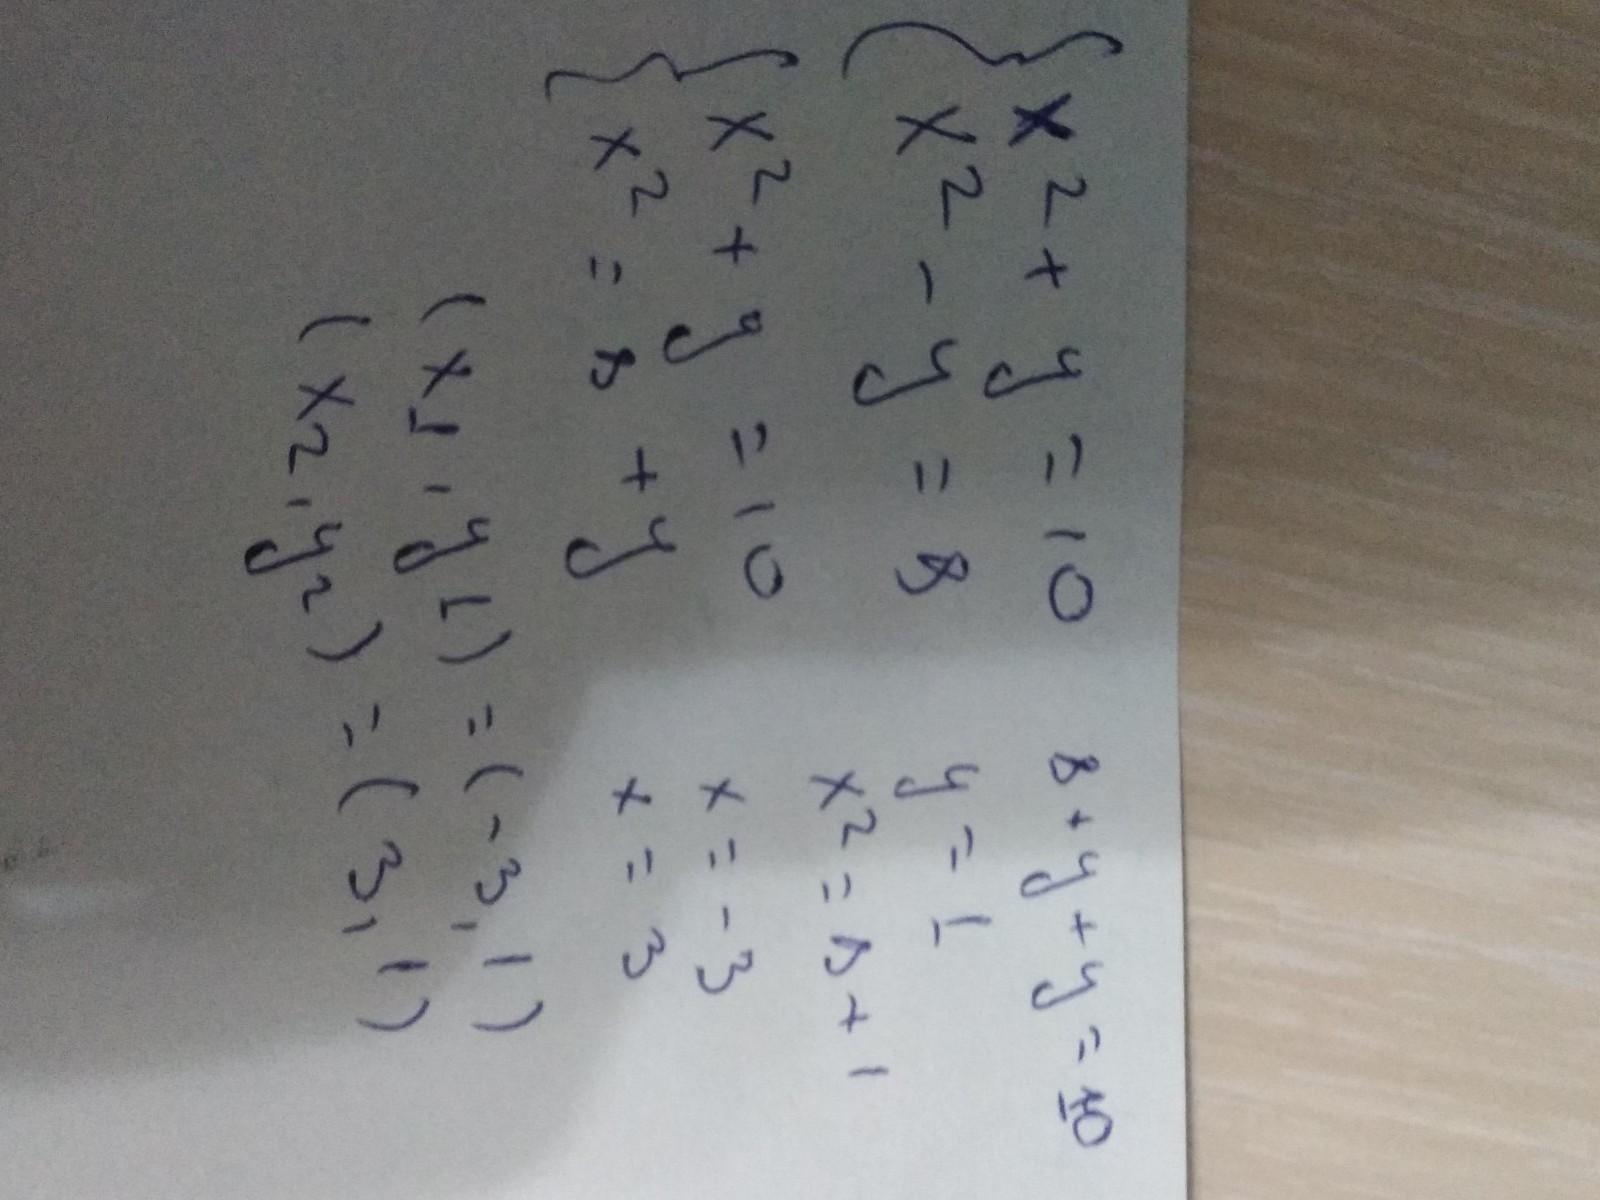 x² + y = 10
x² - y = 8
x² + y = 10
x² = 8 + y
8 + y + y = 10
y = 1
x² = 8 + 1
x = -3
x = 3
(x1, y1) = (-3, 1)
(x2, y2) = (3, 1)